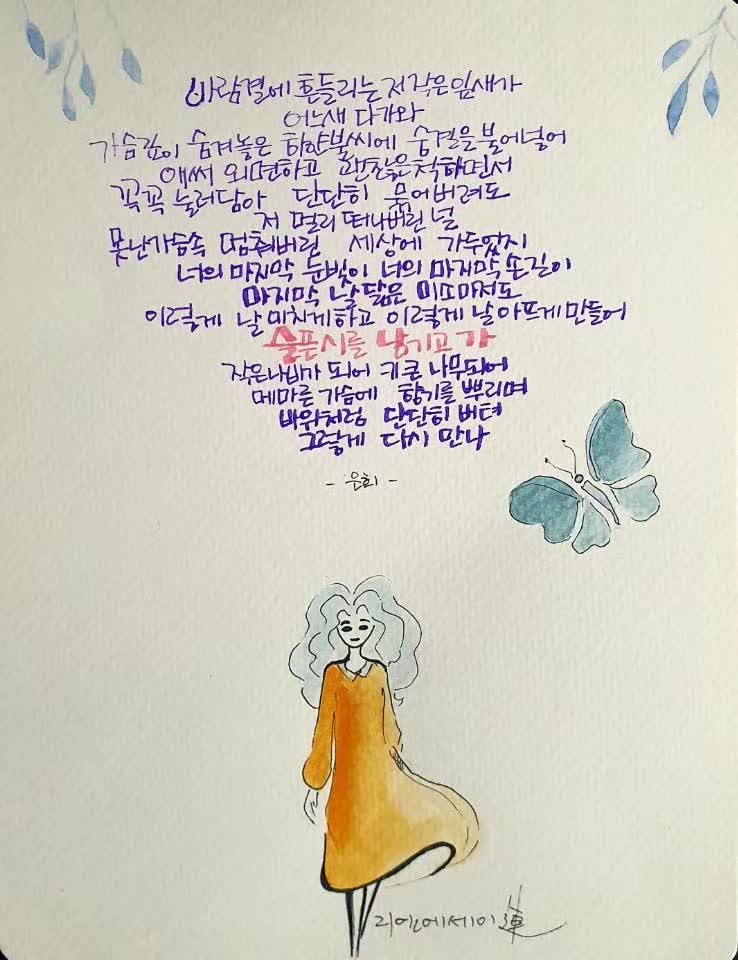 바람결에 흔들리는 저 작은 잎새가
어느새 다가와
가슴 깊이 숨겨놓은 하얀 불씨에 숨결을 불어넣어
애써 외면하고 괜찮은 척하면서
꼭꼭 눌러담아 단단히 묶어버려도
저 멀리 떠나버린 널
못난 가슴속 멈춰버린 세상에 가두었지
너의 마지막 눈빛이 너의 마지막 손길이
마지막 날 닮은 미소마저도
이렇게 날 미치게하고 이렇게 날 아프게 만들어
슬픈 시를 남기고 가
작은 나비가 되어 키 큰 나무되어
메마른 가슴에 향기를 뿌리며
바위처럼 단단히 버텨
그렇게 다시 만나
- 은희 -
리엔에세이 蓮